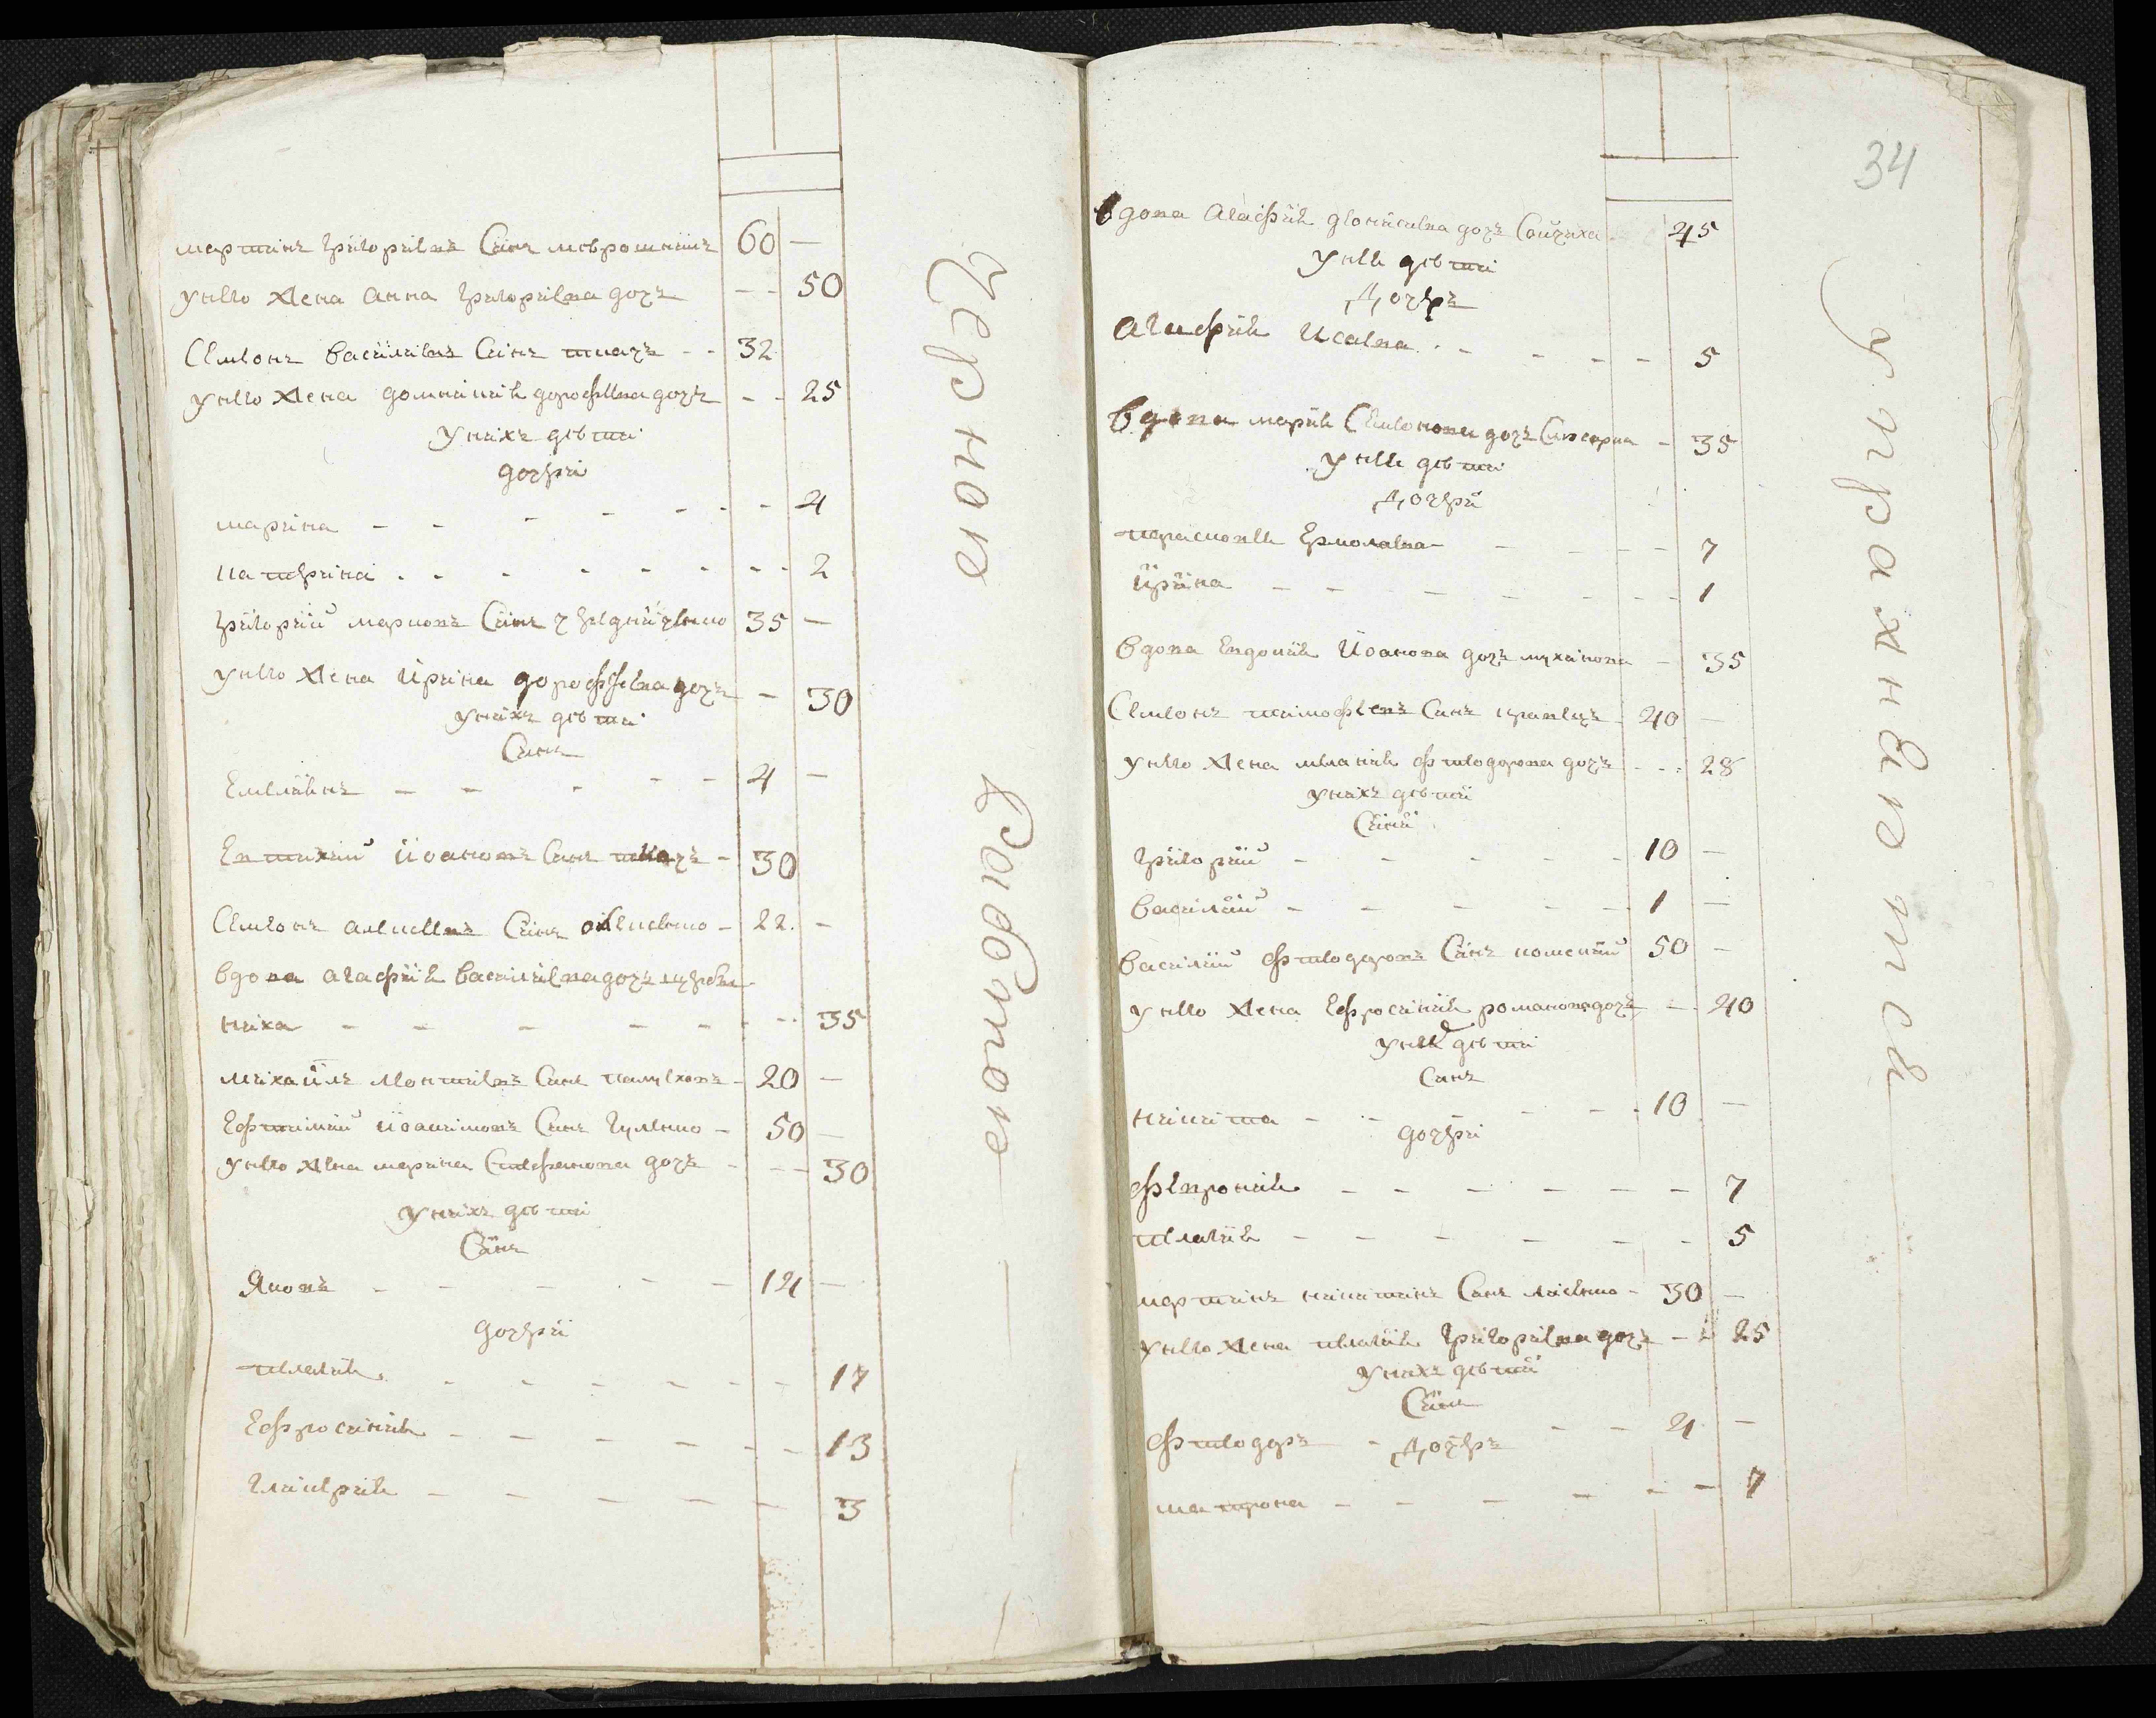 мартинъ григориевъ Синъ мѣрошникъ 60 —
унего жена анна григориевна дочъ — 50
Симеонъ василиевъ Синъ ткачъ - - 32
унего жена домникия дорофеевна дочъ - - 25
унихъ дѣти
дочери
марина - - - - - 4
катерина - - - - - 2
григорий марковъ Синъ 35 —
унего жена ирина дорофеевна дочъ - 30
унихъ дѣти
Синъ
Емелиянъ - - - - 4 —
Евтихий иоановъ Синъ ткачъ - 30
Симеонъ алексеевъ Синъ - 22 -
вдова агафия василиевна дочъ
ниха - - - - - 35
михаилъ Синъ - 20 —
Ефтимий иоакимовъ Синъ гуленко - 50 —
унего жена марина Стефанова дочъ - - 30
унихъ дѣти
Синъ
Яковъ - - - - 14 —
дочерй
пелагия - - - - - 17
Ефросиния - - - - - 13
гликерия - - - - - 3
черноe
Работное
34
вдова агафия дионисиева дочъ 45
унее дѣти
Дочеръ
агафия Исаева - - - - 5
вдова мария Симеонова дочъ - 35
унее дѣти
Дочерй
парасковея Ермолаева - - - 7
ирина - - - - - - 1
вдова Евдокия Иоанова дочъ мухинова - 35
Симеонъ тимофеевъ Синъ кравецъ - 40 —
унего жена мелания феодорова дочъ - - - 28
унихъ дѣтй
Синй
григорий - - - - - 10 —
василий - - - - - 1 —
василий феодоровъ Синъ 50 —
унего жена Ефросиния романова дочъ - - 40
унее дѣти
Синъ
никита - - - - - 10 —
дочери
феврония - - - - - - 7
пелагия - - - - - - 5
мартинъ никитинъ Синъ 30 —
унего жена пелагия григориевна дочъ - 25
унихъ дѣтй
Синъ
феодоръ - - - 4 —
Дочеръ
матрона - - - - - - 7
упражнение